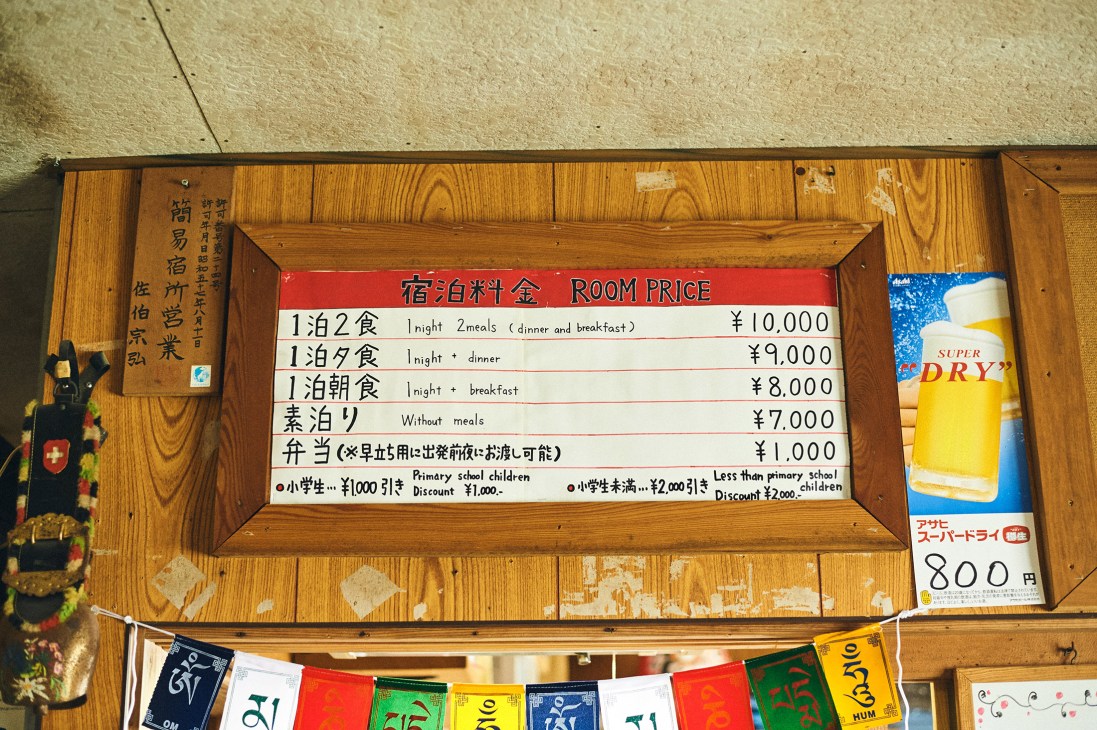 許可番号第二十四号
許可年月日昭和五十七年八月十二日
簡易宿所営業
佐伯宗弘
宿泊料金 ROOM PRICE
1泊2食 1night 2meals (dinner and breakfast) ¥10,000
1泊夕食 1night + dinner ¥9,000
1泊朝食 1night + breakfast ¥8,000
素泊り Without meals ¥7,000
弁当(※早立ち用に出発前夜にお渡し可能) ¥1,000
●小学生…¥1,000引き Primary school children Discount ¥1,000.-
●小学生未満…¥2,000引き Less than primary school children Discount ¥2,000.-
Asahi
SUPER
"DRY"
アサヒ
スーパードライ 樽生
800円
OM
HUM